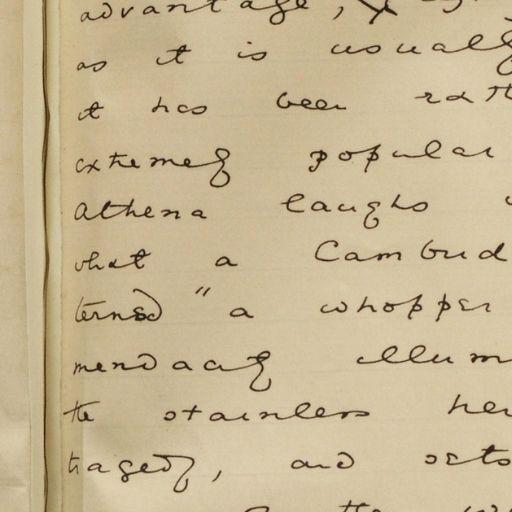 advantage,
as it is usually
it has been
extremely popular
Athena laughs
what a Cambrid
termed "a whopper
mendacity illum
the stainless her
tragedy, and sets
the